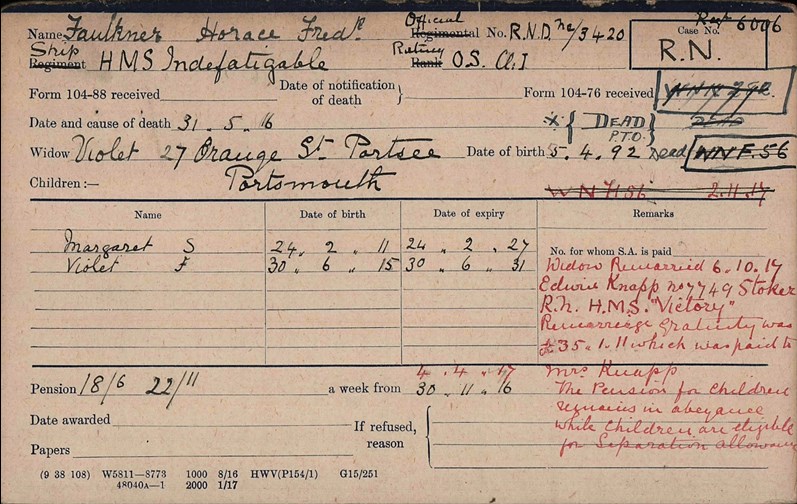 Name Faulkner Horace Fredk Official Regimental No. R.N.D. ne/3420 Case No. Regt 6006
R.N.
Ship Regiment HMS Indefatigable Rating Rank O.S. Cl. I
Form 104-88 received Date of notification of death } Form 104-76 received WNN 292
Date and cause of death 31.5.16 x { DEAD P.T.O. }
Widow Violet 27 Orange St Portsea Date of birth 5.4.92 Dead WNF.56
Children:— Portsmouth 2.11.17
Name Date of birth Date of expiry Remarks
Margaret S 24 " 2 " 11 24 " 2 " 27
Violet F 30 " 6 " 15 30 " 6 " 31
No. for whom S.A. is paid
Widow Remarried 6.10.17
Edwin Knapp no 7749 Stoker
R.N. H.M.S. "Victory"
Remarriage Gratuity was
£35.1.11 which was paid to
Mrs Knapp
The Pension for Children
remains in abeyance
while Children are eligible
for Separation Allowance
4.4.17
Pension 18/6 22/11 a week from 30.11.16
Date awarded
If refused, reason
Papers
(9 38 108) W5811—8773 1000 8/16 HWV(P154/1) G15/251
48040A—1 2000 1/17